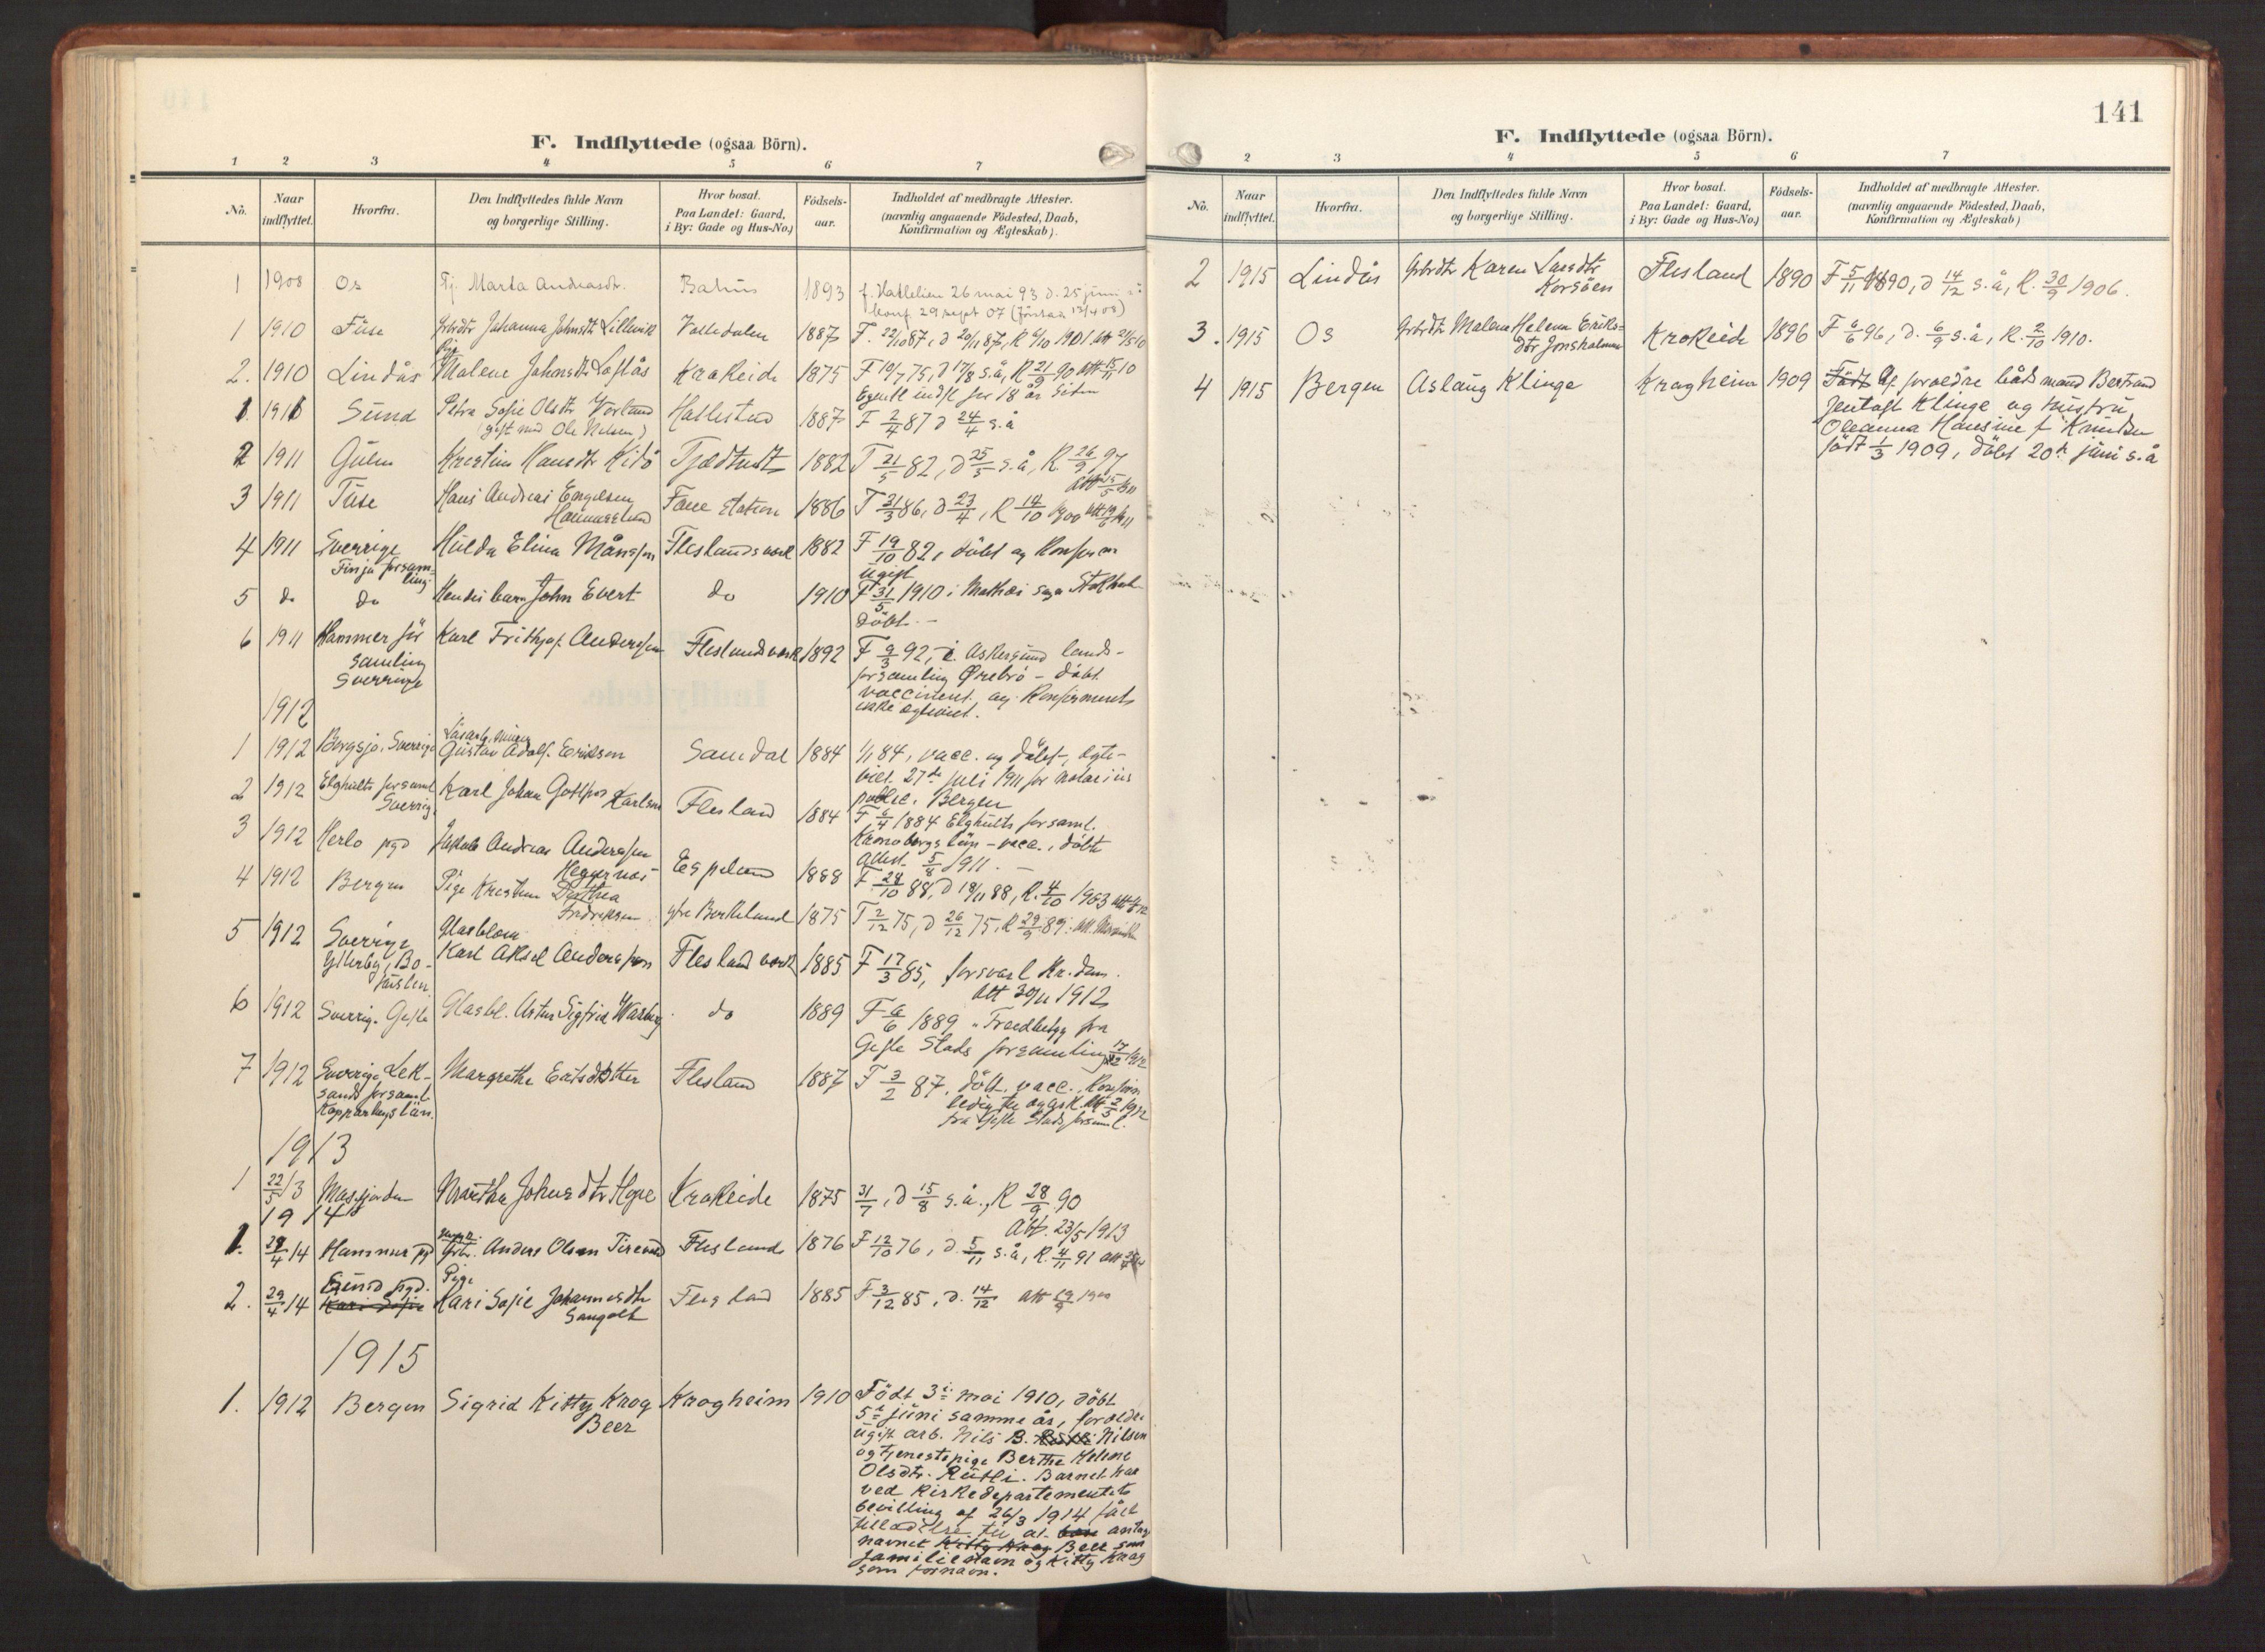 F. Indflyttede (ogsaa Börn).
1 2 3 4 5 6 7
No. Naar indflyttet. Hvorfra. Den Indflyttedes fulde Navn og borgerlige Stilling. Hvor bosat. Paa Landet: Gaard, i By: Gade og Hus-No.) Födsels-aar. Indholdet af medbragte Attester. (navnlig angaaende Födested, Daab, Konfirmation og Ægteskab).
1 1908 Os Tj. Marta Andreasdt. 1893 f. Hatlelien 26 mai 93 d. 25 juni
konf. 29 sept 07
1 1910 Füse Johanna Johnsdt Lillevik 1887 F. 22/10 87, d 20/11 87, K 6/10 1901
2. 1910 Lindås Pige Malene Johnsdt Loftås Krakeide 1875 F 19/7 75, d 17/8 s.å, K 21/9 90 att 15/11 10
1. 1911 Sünd Petra Sofie Olsdtr Vorland Hatlestad 1887 F 2/4 87 d 24/4 s.å
(gift med Ole Nilsen)
2 1911 Gülen Kristine Hansdtr 1882 F 21/5 82, d 25/5 s.å, K 26/9 97
3 1911 Füse Hans Andreas Engelsen Fane station 1886 F 31/3 86, d 23/4, K 14/10 1900
4 1911 Sverrige Hulda Elina Månsson Fleslandsverk 1882 F 19/10 82, döbt og konferm
Finja forsamling ugift
5 do do Hendes barn John Evert do 1910 F 31/5 1910 i
döbt. -
6 1911 Hammer för Karl Frithjof Andersson Fleslandsverk 1892 F 9/3 92, i Askersund lands-
samling Sverrige forsamling Ørebro - döbt
vaccineret og konfirmeret
ikke ægteviet.
1912
1 1912 Bergsjö, Sverrige Gustav Adolf Eriksen Samdal 1884 1/1 84, vacc. og döbt, egte-
viet 27de juli 1911 for notarius
public. Bergen
2 1912 Elghults forsaml Sverrig. Karl Johan Karlson Flesland 1884 F 6/4 1884 Elghults forsaml.
Kronobergs län - vacc., döbte
attest 5/8 1911. -
3 1912 Herlo pgd Jakob Andreas Anderssen Espeland 1888 F 28/10 88, d 18/11 88, K. 4/10 1903
4 1912 Bergen Pige Kristine Dorthea Fredriksen 1875 F 2/12 75, d 26/12 75, K 29/9 89.
5 1912 Sverrige Ytterby, Bo-hüslen Glasbläser Karl Aksel Andersson Fleslandverk 1885 F 17/3 85,
att 30/11 1912
6 1912 Sverrig. Gefle Glasbl. Artur Sigfrid Wasberg do 1889 F 6/6 1889 fra
Gefle Stads forsamling
7 1912 Sverrige Lek-sands forsaml. Kopparbergs län. Margrethe Ersdotter Flesland 1887 F 3/2 87. döbt. vacc., Konfirm
ledig til ægtsk.
fra Gefle Stadsforsaml.
1913
1 22/5 13 Masfjorden Martha Johnsdtr Hope Krakeide 1875 31/7, d 15/8 s.å., K 28/9 90
Att. 23/5 1913
1914
1. 29/4 14 Hammer pgd Anders Olsen Flesland 1876 F 12/10 76, d. 5/11 s.å, K. 4/11 91
2. 29/4 14 Sund pgd. Kari Sofie Pige Kari Sofie Johannesdtr Sangolt Flesland 1885 F 3/12 85, d. 14/12
1915
1. 1912 Bergen Sigrid Kitty Krog Beer Krogheim 1910 Födt 3de mai 1910, döbt
5te jüni samme år, forældre
ugift arb. Nils B. Nilsen
og tjenestepige Berthe Helene
Olsdtr. Rütli. Barnet har
ved kirkedepartementets
bevilling af 26/3 1914 fået
tilladelse til at antag
navnet Kitty Krog Beer som
familienavn og Kitty Krog
som fornavn.
141
F. Indflyttede (ogsaa Börn).
2 3 4 5 6 7
No. Naar indflyttet. Hvorfra. Den Indflyttedes fulde Navn og borgerlige Stilling. Hvor bosat. Paa Landet: Gaard, i By: Gade og Hus-No.) Födsels-aar. Indholdet af medbragte Attester. (navnlig angaaende Födested, Daab, Konfirmation og Ægteskab)
2 1915 Lindås Karen Larsdtr Korsöen Flesland 1890 F 5/11 1890, d 14/12 s.å, K. 30/9 1906.
3. 1915 Os Malene Helene Eriks-dtr Jonsholmen Krokeide 1896 F 6/6 96, d. 6/9 s.å, K. 2/10 1910.
4 1915 Bergen Aslaug Klinge Kragheim 1909 Födt Af foreldre bådsmand Bertrand
Jentoft Klinge og hustru
Oleanna Hansine f Knudsen
född 1/3 1909, döbt 20de juni s.å